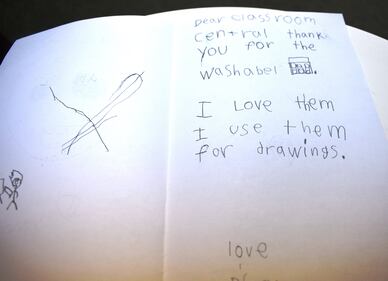 Dear classroom
central thank
you for the
washabel
I Love them
I use them
for drawings.
love